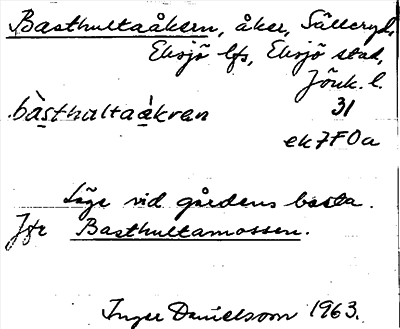 Basthultaåkern, åker, Sälleryd,
Eksjö lfs, Eksjö stad,
Jönk. l.
bàsthultaàkran 31
ek 7F0a
Låge vid gårdens basta.
Jfr Basthultamossen.
Inger Danielsson 1963.